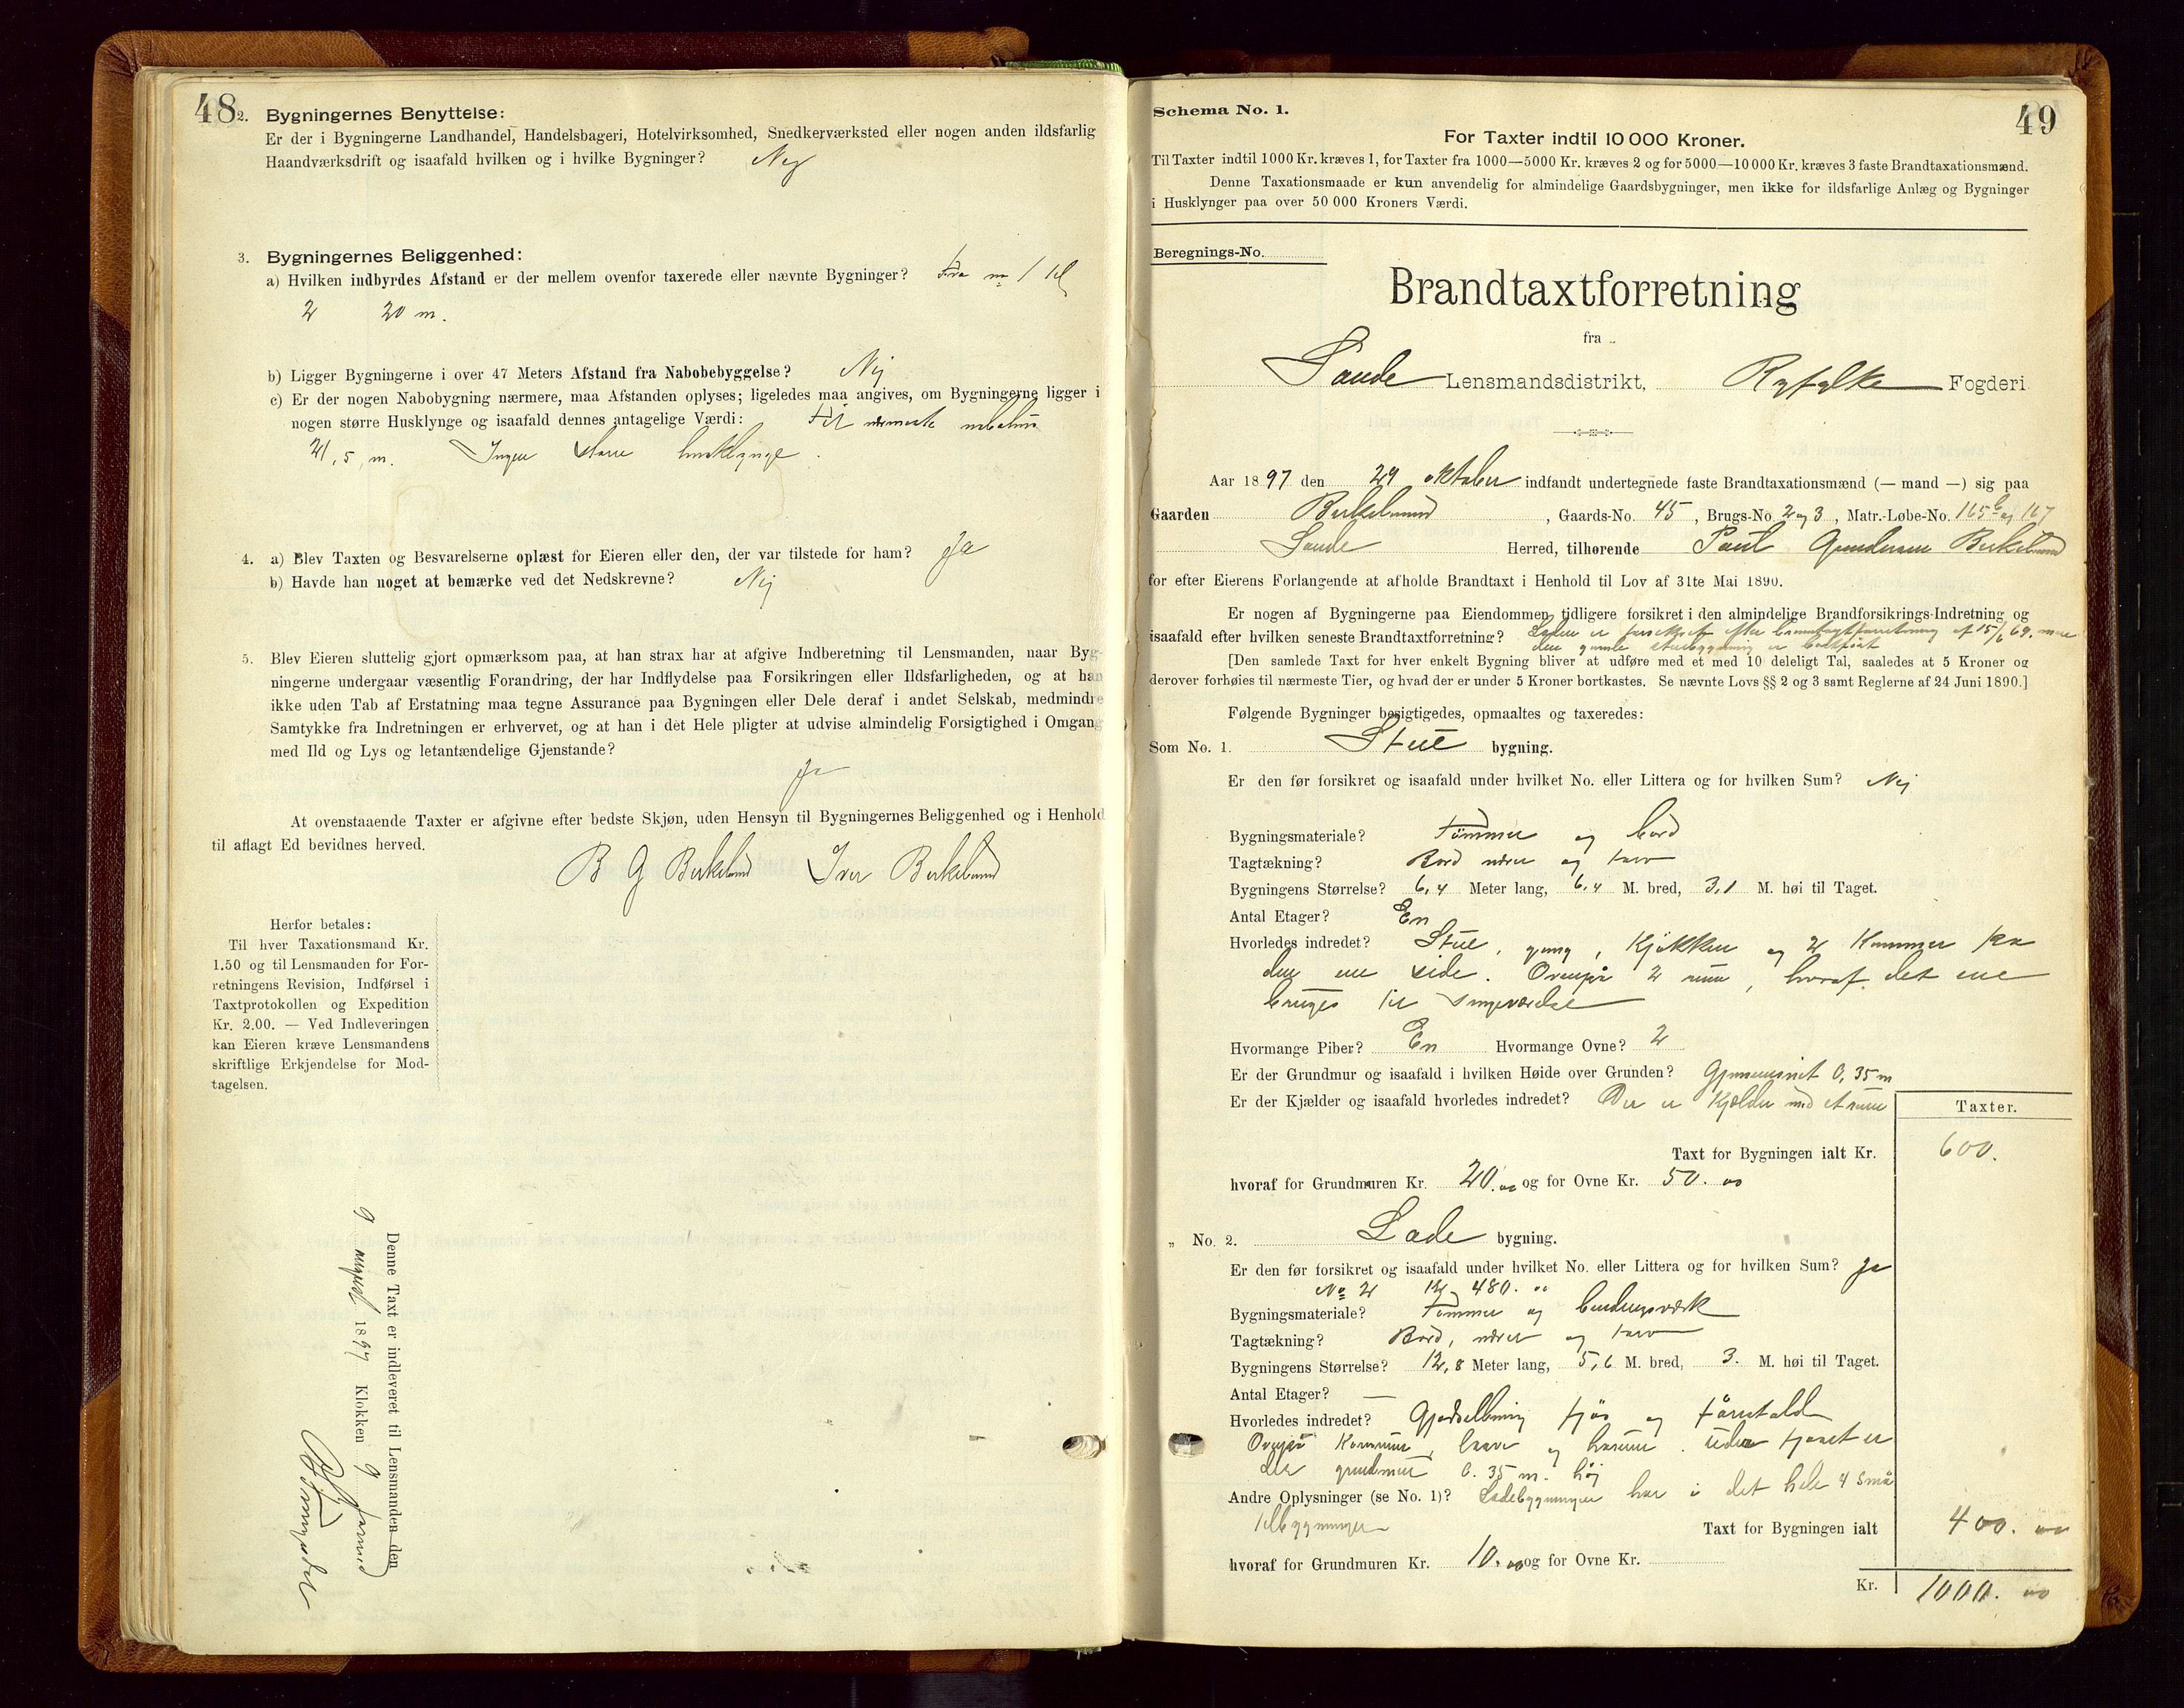 48
2. Bygningernes Benyttelse:
Er der i Bygningerne Landhandel, Handelsbageri, Hotelvirksomhed, Snedkerværksted eller nogen anden ildsfarlig
Haandværksdrift og isaafald hvilken og i hvilke Bygninger? Nej
3. Bygningernes Beliggenhed:
a) Hvilken indbyrdes Afstand er der mellem ovenfor taxerede eller nævnte Bygninger? Fra no 1 til
2 20 m.
b) Ligger Bygningerne i over 47 Meters Afstand fra Nabobebyggelse? Nej
c) Er der nogen Nabobygning nærmere, maa Afstanden oplyses; ligeledes maa angives, om Bygningerne ligger i
nogen større Husklynge og isaafald dennes antagelige Værdi: Til nærmeste nabohus
21,5 m. Ingen større husklynge.
4. a) Blev Taxten og Besvarelserne oplæst for Eieren eller den, der var tilstede for ham? Ja
b) Havde han noget at bemærke ved det Nedskrevne? Nej
5. Blev Eieren sluttelig gjort opmærksom paa, at han strax har at afgive Indberetning til Lensmanden, naar Byg-
ningerne undergaar væsentlig Forandring, der har Indflydelse paa Forsikringen eller Ildsfarligheden, og at han
ikke uden Tab af Erstatning maa tegne Assurance paa Bygningen eller Dele deraf i andet Selskab, medmindre
Samtykke fra Indretningen er erhvervet, og at han i det Hele pligter at udvise almindelig Forsigtighed i Omgang
med Ild og Lys og letantændelige Gjenstande?
Ja
At ovenstaaende Taxter er afgivne efter bedste Skjøn, uden Hensyn til Bygningernes Beliggenhed og i Henhold
til aflagt Ed bevidnes herved.
B G Birkelund Iver Birkelund
Herfor betales:
Til hver Taxationsmand Kr.
1.50 og til Lensmanden for For-
retningens Revision, Indførsel i
Taxtprotokollen og Expedition
Kr. 2.00. — Ved Indleveringen
kan Eieren kræve Lensmandens
skriftlige Erkjendelse for Mod-
tagelsen.
Denne Taxt er indleveret til Lensmanden den
9 1897 Klokken 9 formid
Schema No. 1.
49
For Taxter indtil 10 000 Kroner.
Til Taxter indtil 1000 Kr. kræves 1, for Taxter fra 1000—5000 Kr. kræves 2 og for 5000—10 000 Kr. kræves 3 faste Brandtaxationsmænd.
Denne Taxationsmaade er kun anvendelig for almindelige Gaardsbygninger, men ikke for ildsfarlige Anlæg og Bygninger
i Husklynger paa over 50 000 Kroners Værdi.
Beregnings-No.
Brandtaxtforretning
fra
Saude Lensmandsdistrikt, Ryfylke Fogderi
Aar 1897 den 29 oktober indfandt undertegnede faste Brandtaxationsmænd (— mand —) sig paa
Gaarden Birkelund, Gaards-No. 45, Brugs-No. 2 og 3, Matr.-Løbe-No. 165b og 167
Saude Herred, tilhørende Paul Gundersen Birkelund
for efter Eierens Forlangende at afholde Brandtaxt i Henhold til Lov af 31te Mai 1890.
Er nogen af Bygningerne paa Eiendommen tidligere forsikret i den almindelige Brandforsikrings-Indretning og
isaafald efter hvilken seneste Brandtaxtforretning? Laden er forsikret efter brandtaxtforretning af 15/6 69, men
den gamle stuebygning er bortført
[Den samlede Taxt for hver enkelt Bygning bliver at udføre med et med 10 deleligt Tal, saaledes at 5 Kroner og
derover forhøies til nærmeste Tier, og hvad der er under 5 Kroner bortkastes. Se nævnte Lovs §§ 2 og 3 samt Reglerne af 24 Juni 1890.]
Følgende Bygninger besigtigedes, opmaaltes og taxeredes:
Som No. 1. Stue bygning.
Er den før forsikret og isaafald under hvilket No. eller Littera og for hvilken Sum? Nej
Bygningsmateriale? Tømmer og bord
Tagtækning? Bord næver og torv
Bygningens Størrelse? 6,4 Meter lang, 6,4 M. bred, 3,1 M. høi til Taget.
Antal Etager? En
Hvorledes indredet? Stue, gang, Kjøkken og 2 Kammer paa
den ene side. Ovenpå 2 rum, hvoraf det ene
bruges til
Hvormange Piber? En Hvormange Ovne? 2
Er der Grundmur og isaafald i hvilken Høide over Grunden? Gjennemsnit 0,35 m
Er der Kjælder og isaafald hvorledes indredet? Der er Kjelder med et rum
Taxter.
Taxt for Bygningen ialt Kr. 600.
hvoraf for Grundmuren Kr. 20.00 og for Ovne Kr. 50.00
„ No. 2. Lade bygning.
Er den før forsikret og isaafald under hvilket No. eller Littera og for hvilken Sum? Ja
No 2 Kr 480.00
Bygningsmateriale? Tømmer og bindingsværk
Tagtækning? Bord, næver og torv
Bygningens Størrelse? 12,8 Meter lang, 5,6 M. bred, 3. M. høi til Taget.
Antal Etager? —
Hvorledes indredet? fjøs og fårestald
Ovenpå og . Under fjøset er
der grundmur 0.35 m. høj
Andre Oplysninger (se No. 1)? Ladebygningen har i det hele 4 små
tilbygninger
Taxt for Bygningen ialt 400.00
hvoraf for Grundmuren Kr. 10.00 og for Ovne Kr.
Kr. 1000.00